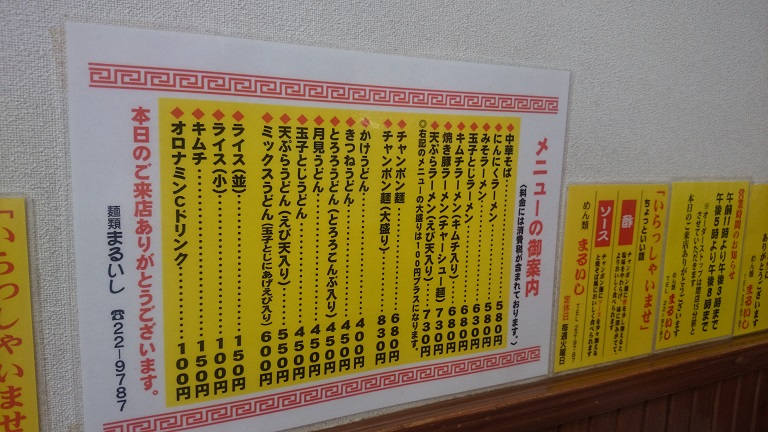 メニューの御案内
(料金には消費税が含まれております。)
◆中華そば
◆にんにくラーメン……580円
◆みそラーメン……580円
◆玉子とじラーメン……630円
◆キムチラーメン(キムチ入り)……680円
◆焼き豚ラーメン(チャーシュー麺)
◆天ぷらラーメン(えび天入り)……730円
◎右記のメニューの大盛りは100円プラスになります。
◆チャンポン麺……680円
◆チャンポン麺(大盛り)……830円
◆かけうどん……400円
◆きつねうどん……450円
◆とろろうどん(とろろこんぶ入り)……450円
◆月見うどん……450円
◆玉子とじうどん……450円
◆天ぷらうどん(えび天入り)……550円
◆ミックスうどん(玉子とじにあげえび入り)……600円
◆ライス(並)……150円
◆ライス(小)……100円
◆キムチ……150円
◆オロナミンCドリンク……100円
本日のご来店ありがとうございます。
麺類 まるいし ☎22-9787
営業時間のお知らせ
午前11時より午後3時まで
午後5時より午後8時まで
めん類 まるいし
「いらっしゃいませ」
ちょっといい麺
酢
ソース
めん類 まるいし
定休日 毎週火曜日
「いらっしゃいませ